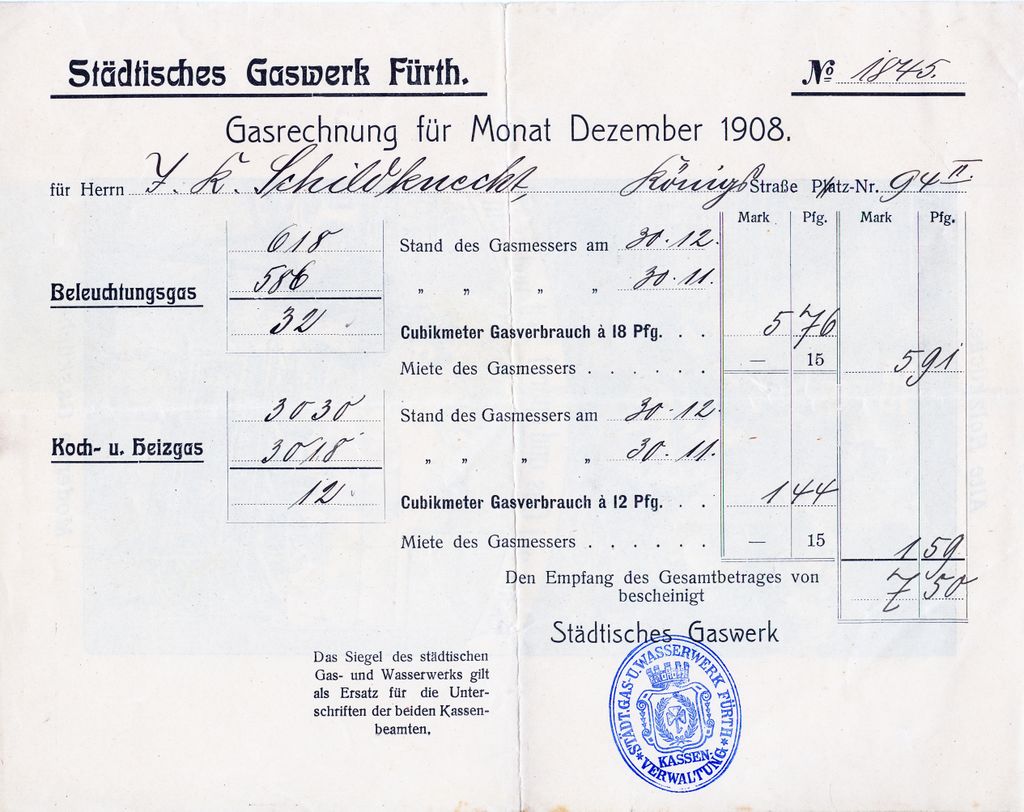 Städtisches Gaswerk Fürth.
№ 1845.
Gasrechnung für Monat Dezember 1908.
für Herrn J. K. Schildknecht, Königs Straße Platz-Nr. 94 II.
Mark Pfg. Mark Pfg.
618 Stand des Gasmessers am 30.12.
Beleuchtungsgas 586 „ „ „ „ 30.11.
32 Cubikmeter Gasverbrauch à 18 Pfg. . . 5 76
Miete des Gasmessers . . . . . . — 15 5 91
3030 Stand des Gasmessers am 30.12.
Koch- u. Heizgas 3018 „ „ „ „ 30.11.
12 Cubikmeter Gasverbrauch à 12 Pfg. . . 1 44
Miete des Gasmessers . . . . . . — 15 1 59
Den Empfang des Gesamtbetrages von 7 50
bescheinigt
Städtisches Gaswerk
Das Siegel des städtischen
Gas- und Wasserwerks gilt
als Ersatz für die Unter-
schriften der beiden Kassen-
beamten.
STÄDT. GAS- U. WASSERWERK FÜRTH
KASSEN-
* VERWALTUNG *